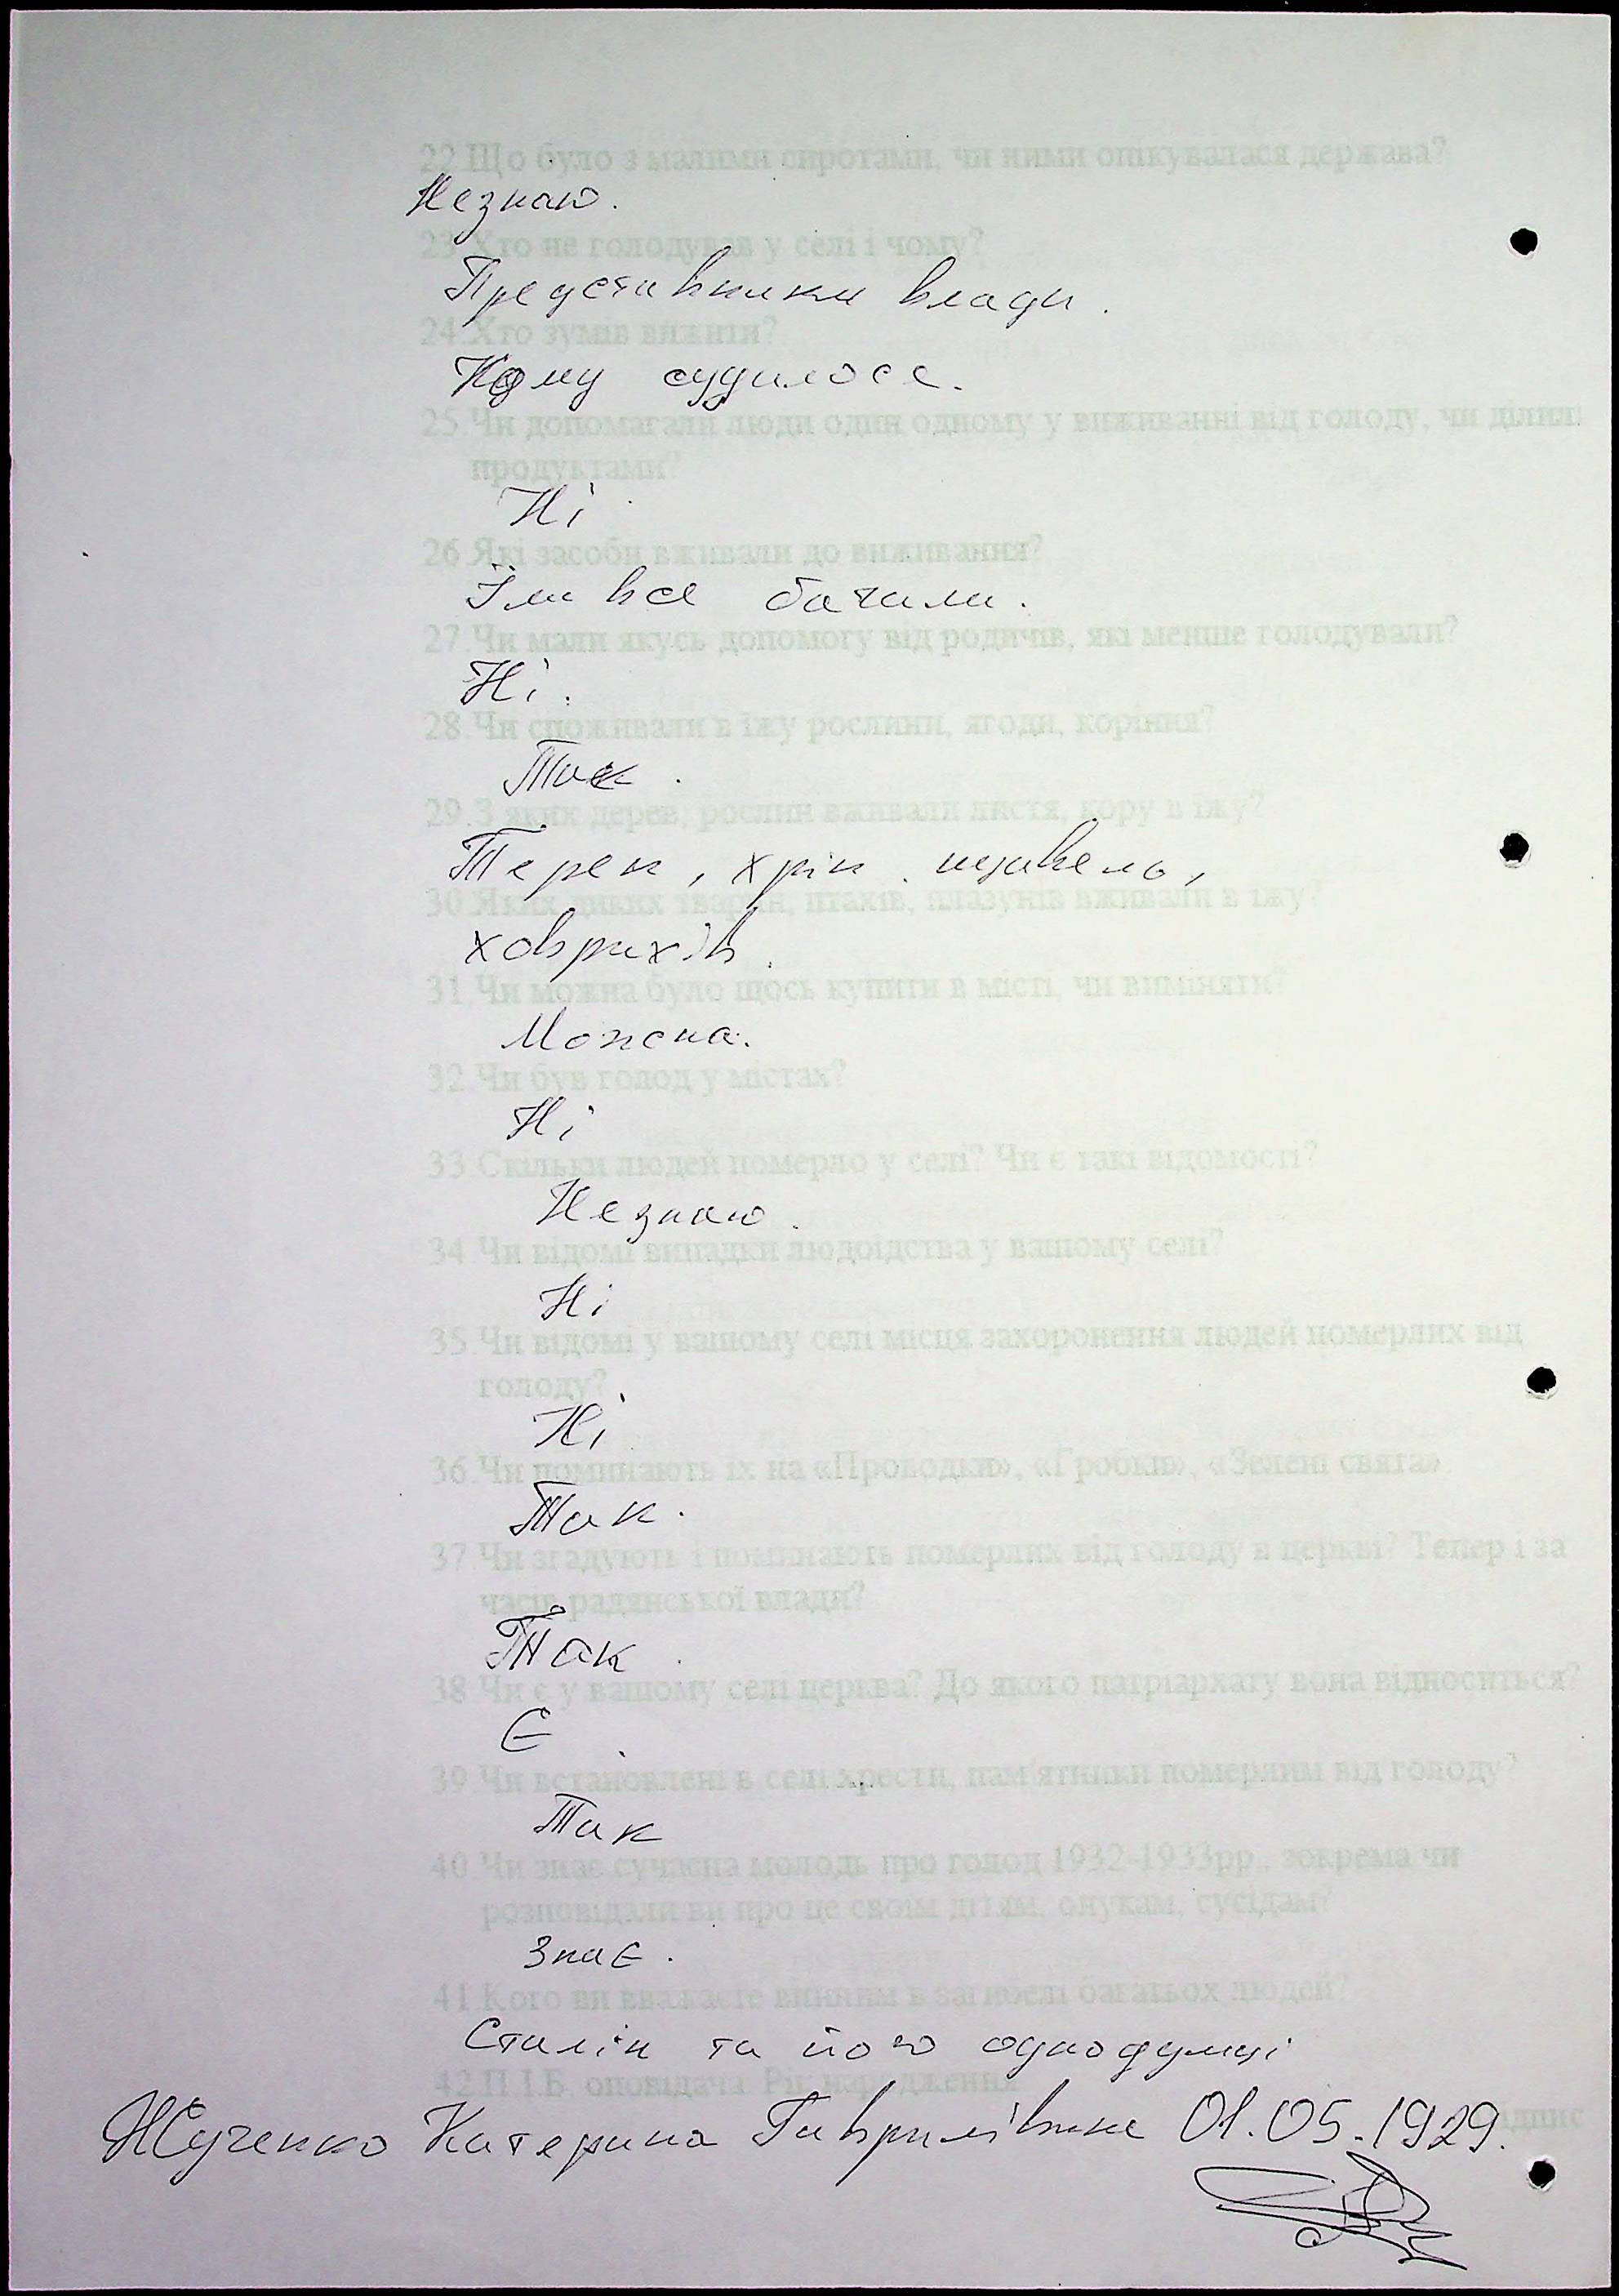 22.Що було з малими сиротами, чи ними опікувалася держава?
Незнаю.
23.Хто не голодував у селі і чому?
Представники влади.
24.Хто зумів вижити?
Кому судилося.
25.Чи допомагали люди один одному у виживанні від голоду, чи ділили
продуктами?
Ні
26.Які засоби вживали до виживання?
Їли все бачили.
27.Чи мали якусь допомогу від родичів, які менше голодували?
Ні.
28.Чи споживали в їжу рослини, ягоди, коріння?
Так.
29.З яких дерев, рослин вживали листя, кору в їжу?
Терен, хрін. щавель,
30.Яких диких тварин, птахів, плазунів вживали в їжу?
ховрихів.
31.Чи можна було щось купити в місті, чи виміняти?
Можна.
32.Чи був голод у містах?
Ні
33.Скільки людей померло у селі? Чи є такі відомості?
Незнаю.
34.Чи відомі випадки людоїдства у вашому селі?
Ні
35.Чи відомі у вашому селі місця захоронення людей померлих від
голоду?
Ні
36.Чи поминають їх на «Проводки», «Гробки», «Зелені свята»
Так.
37.Чи згадують і поминають померлих від голоду в церкві? Тепер і за
часів радянської влади?
Так.
38.Чи є у вашому селі церква? До якого патріархату вона відноситься?
Є
39.Чи встановлені в селі хрести, пам'ятники померлим від голоду?
Так
40.Чи знає сучасна молодь про голод 1932-1933рр., зокрема чи
розповідали ви про це своїм дітям, онукам, сусідам?
Знає.
41.Кого ви вважаєте винним в загибелі багатьох людей?
Сталін та його однодумці
42.П.І.Б. оповідача. Рік народження
Жученко Катерина Гаврилівна 01.05.1929.